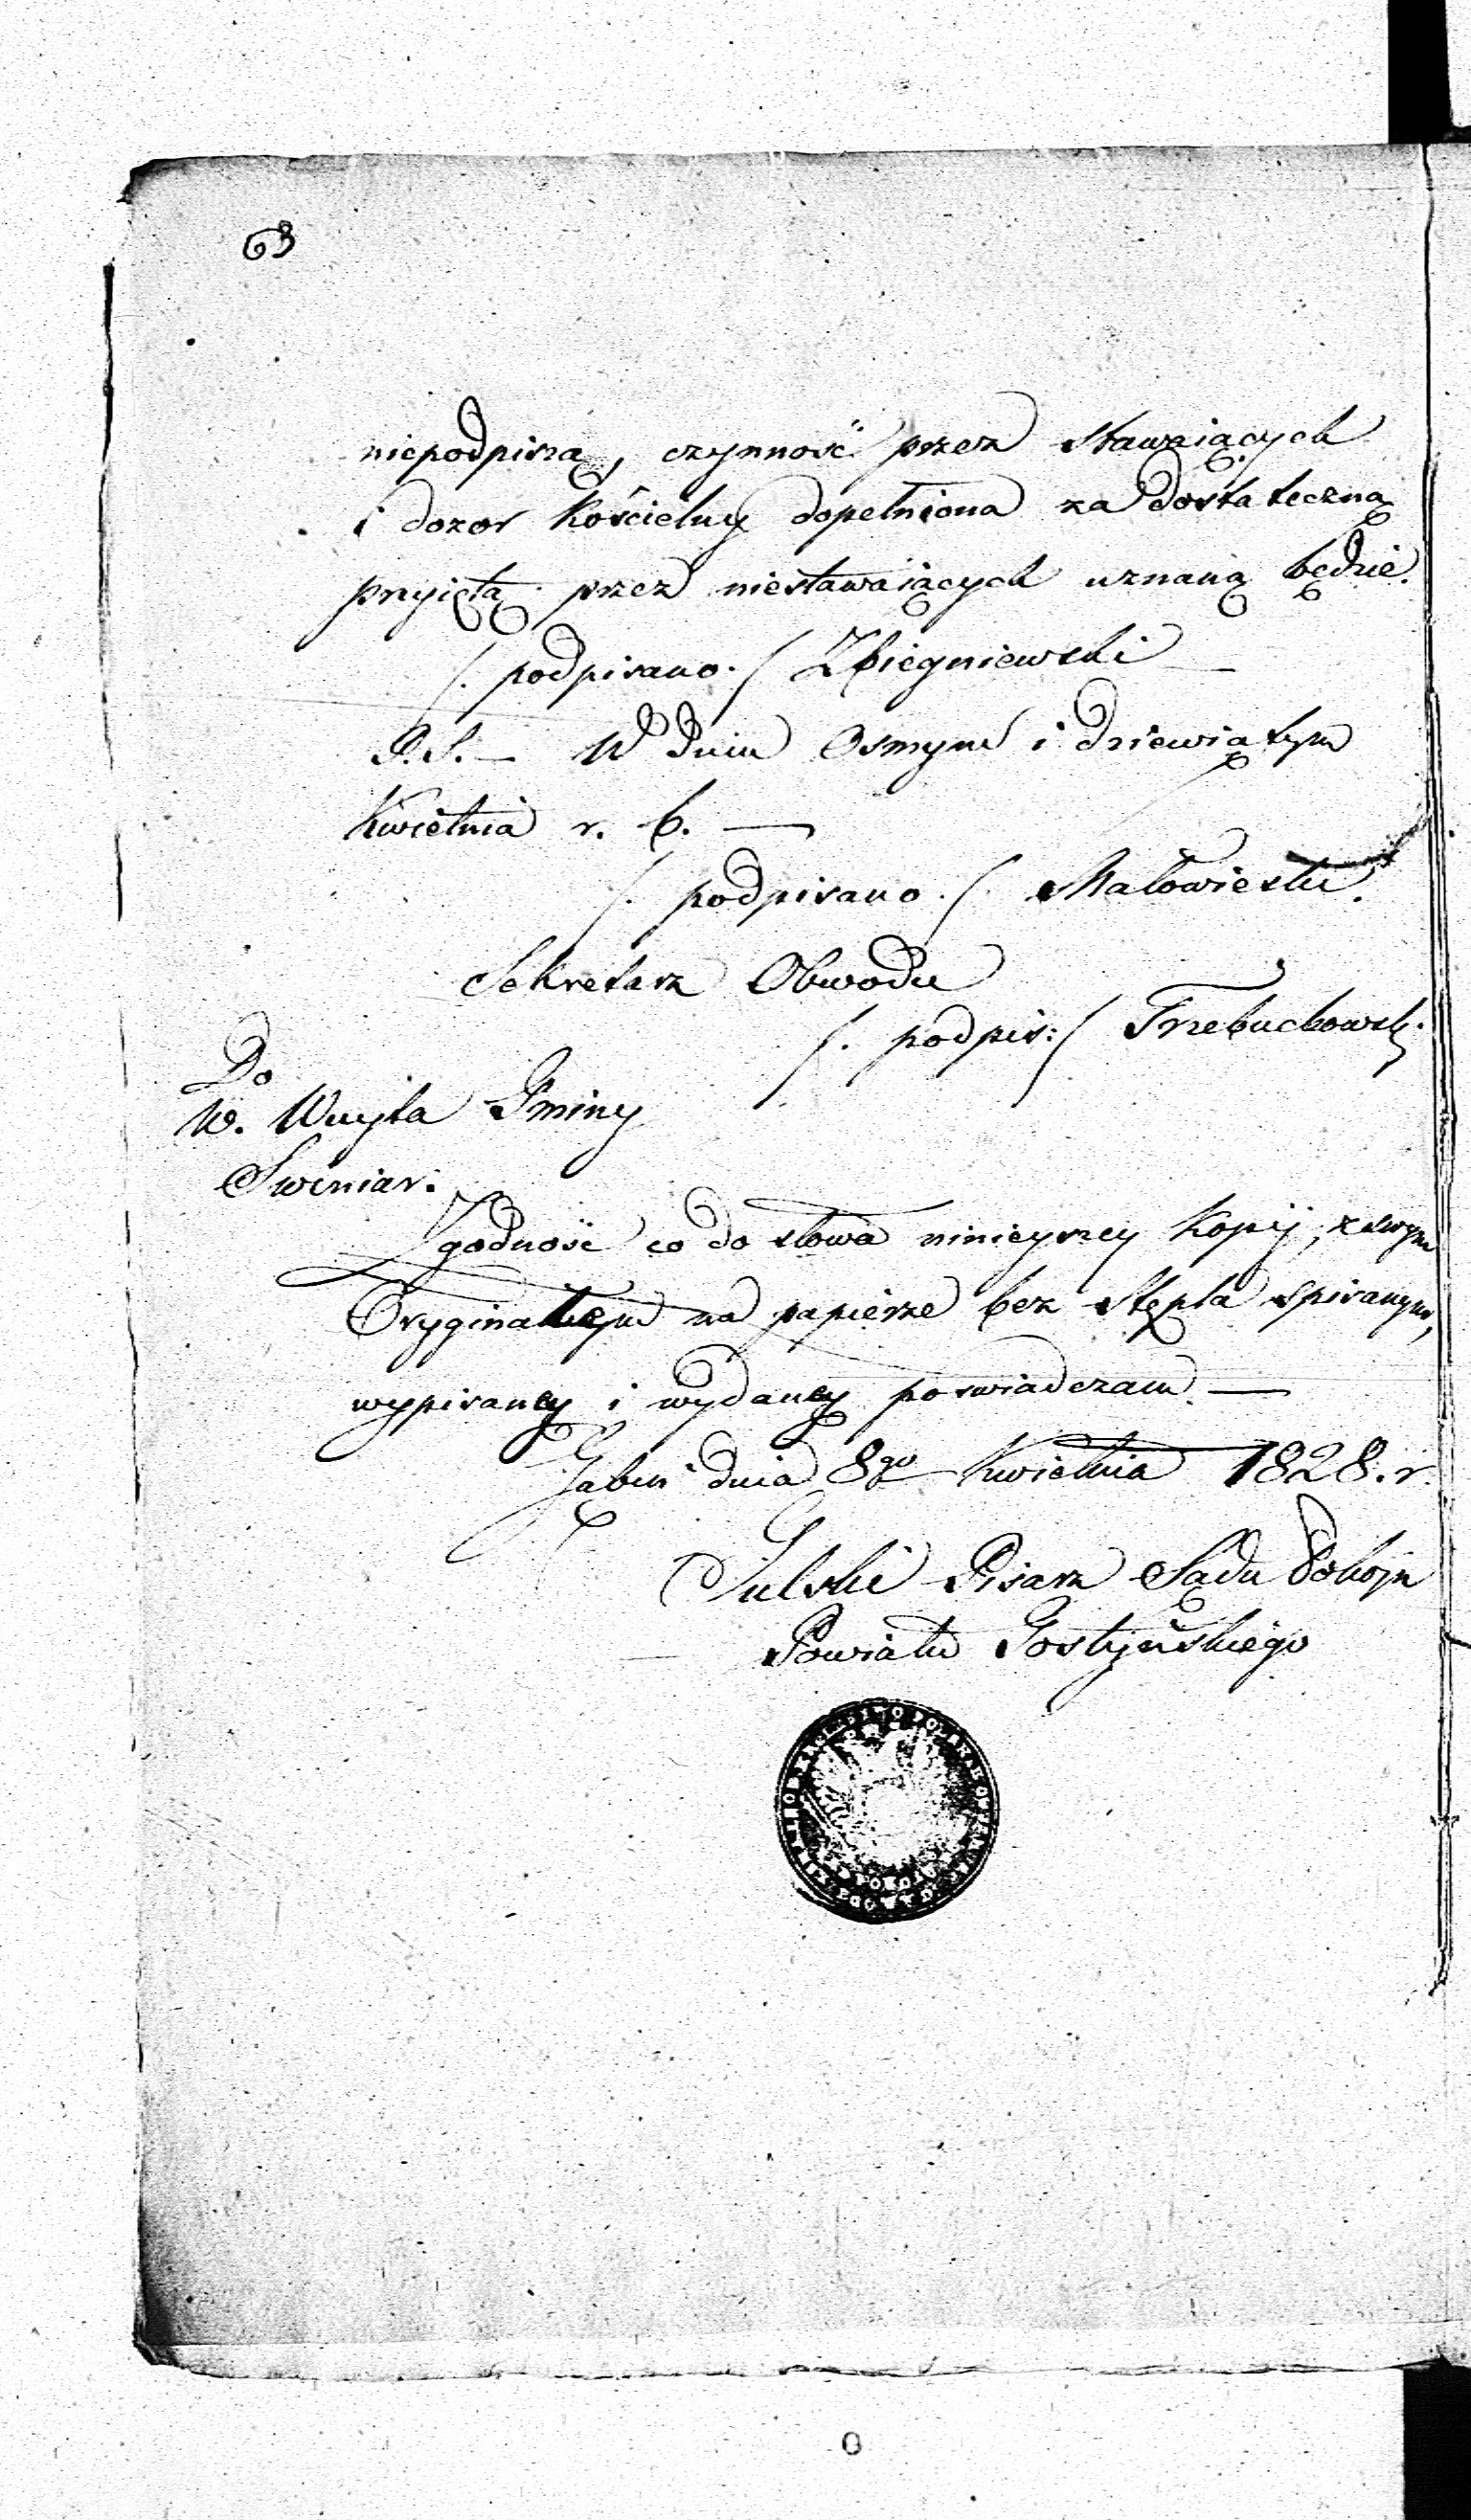 63
niepodpiszą, czynność przez stawaiących
i dozor Kościelny dopełniona za dostateczną
przyiętą przez niestawaiących uznaną będzie.
/. podpisano. / Zbiegniewski
P.S. — W Dniu Osmym i dziewiątym
Kwietnia r. b. —
/. podpisano. /. Małowieski.
Sekretarz Obwodu
/. podpis: / Trzebuchowski.
Do
W. Wuyta Gminy
Sweniar.
Zgodność co do słowa ninieyszey Kopij, z swym
Oryginałem na papierze bez stępla spisanym,
wypisaney i wydaney poswiadczam —
Gąbin dnia 8go Kwietnia 1828. r.
Pisarz Sądu Pokoju
Powiatu Gostyńskiego
0